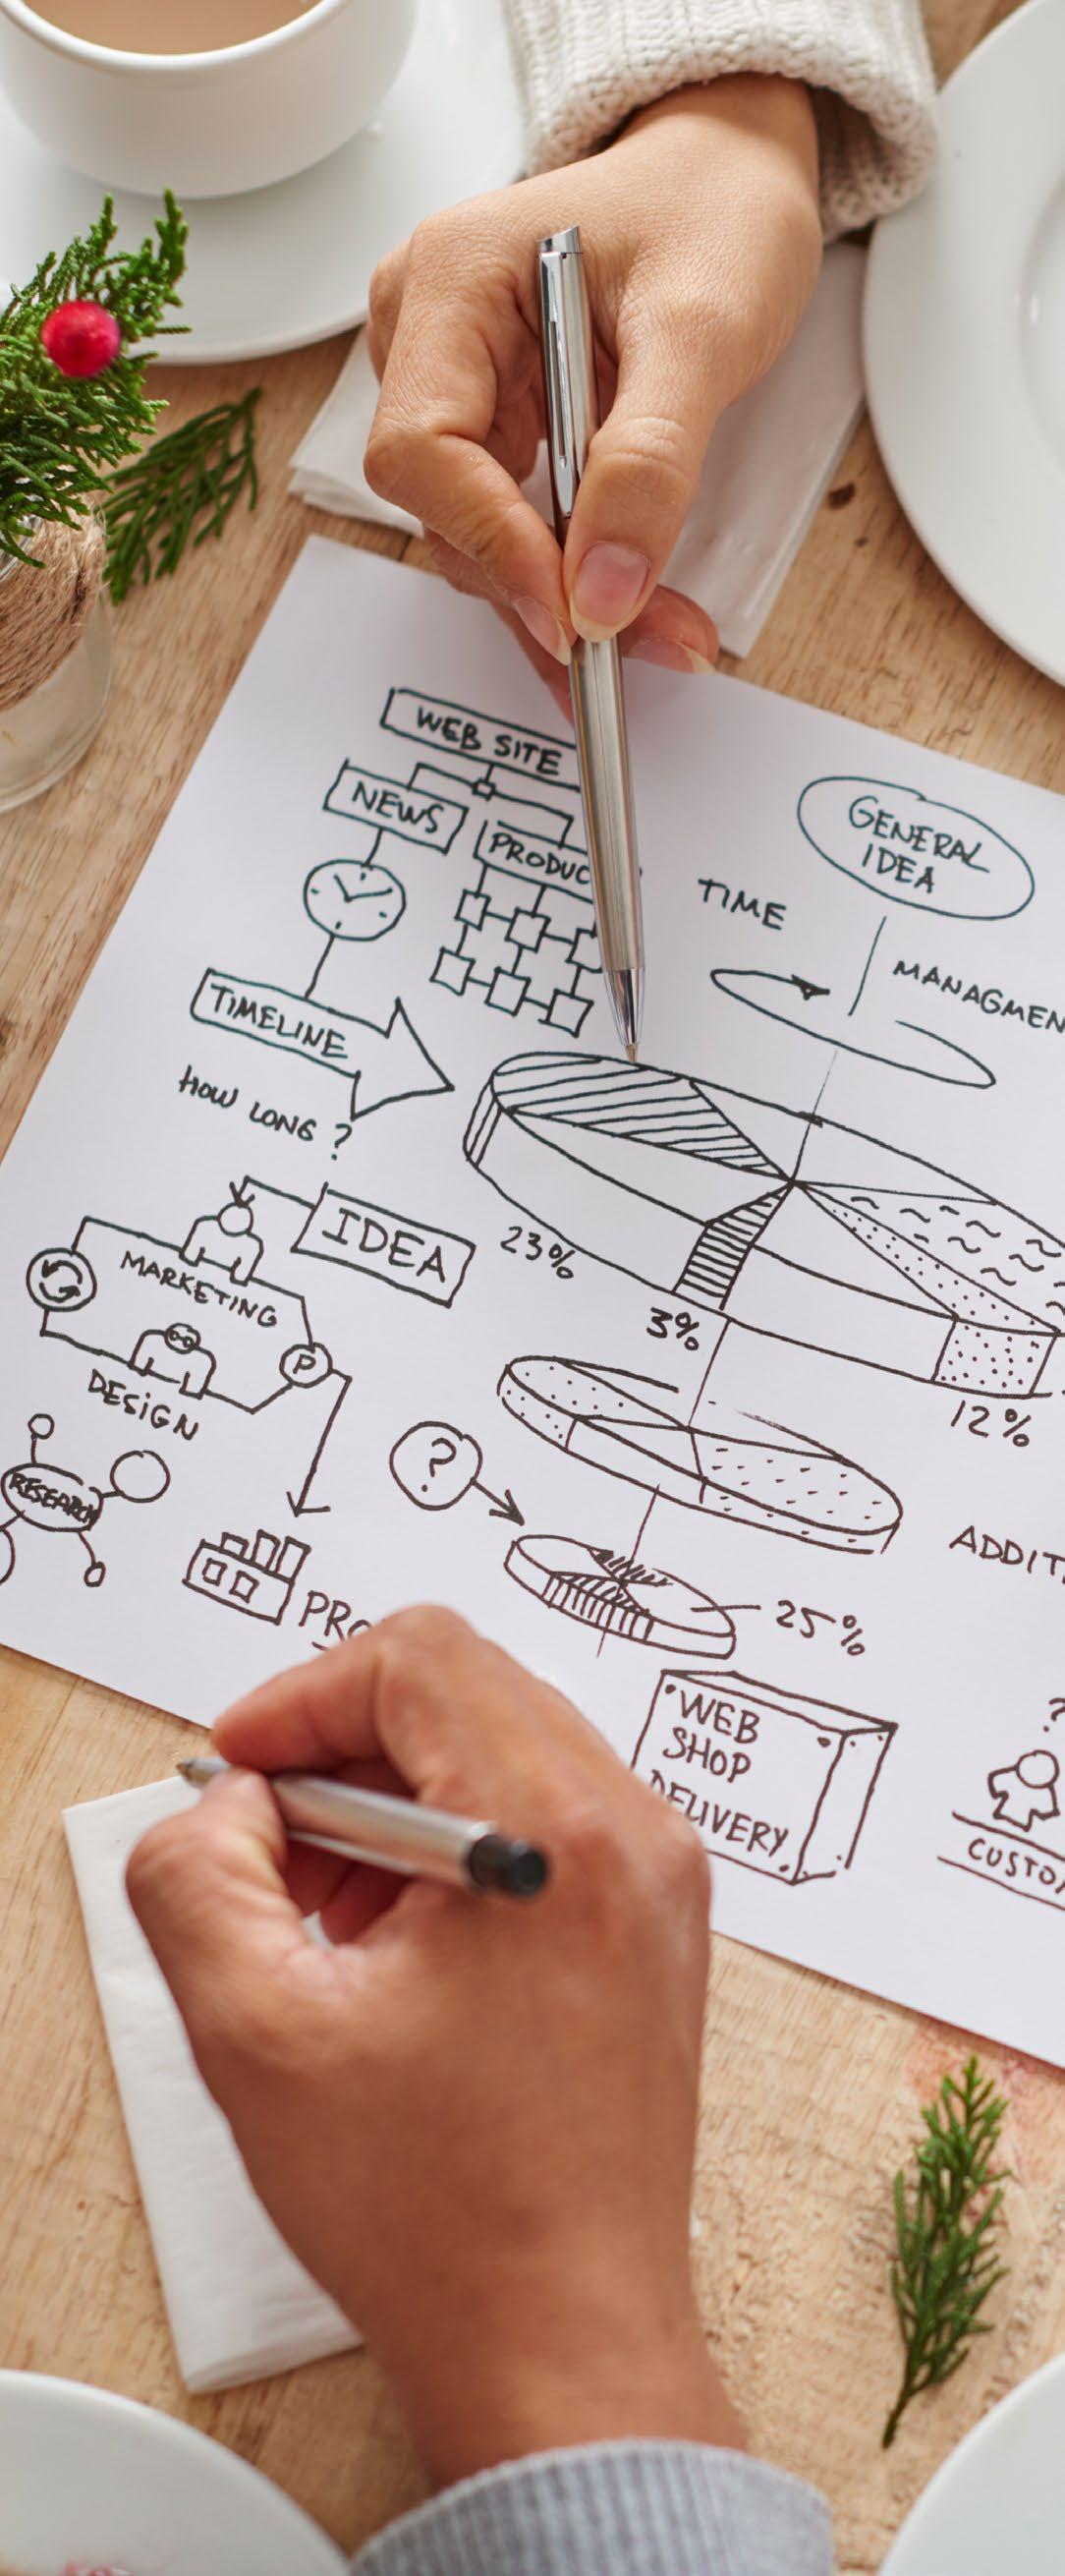 WEB SITE
NEWS
PRODUC
GENERAL
IDEA
TIME
MANAGMEN
TIMELINE
HOW LONG ?
IDEA
23%
3%
12%
MARKETING
P
DESIGN
RESEARCH
?
ADDIT
PRO
25%
WEB
SHOP
DELIVERY
?
CUSTO